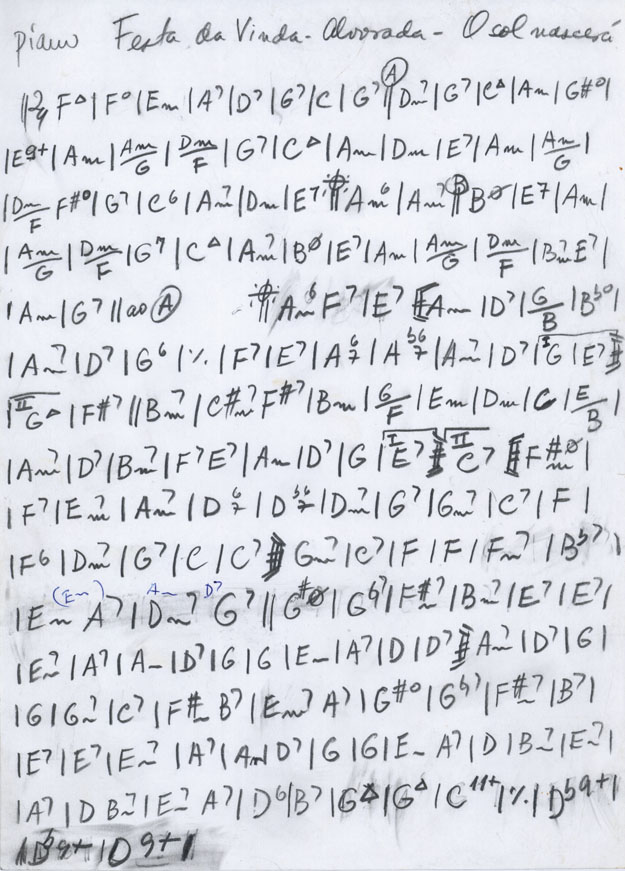 piano Festa da Vinda - Alvorada - O sol nascerá
||2/4 F△ | F° | Em | A7 | D7 | G7 | C | G7 || (A) Dm7 | G7 | C△ | Am | G#° |
| E9+ | Am | Am/G | Dm/F | G7 | C△ | Am | Dm | E7 | Am | Am/G |
| Dm/F F#° | G7 | C6 | Am7 | Dm | E7 𝄌 Am6 | Am7 || (B) BØ | E7 | Am |
| Am/G | Dm/F | G7 | C△ | Am7 | BØ | E7 | Am | Am/G | Dm/F | Bm7 E7 |
| Am | G7 || ao (A) 𝄌 Am6 F7 | E7 ||: Am | D7 | G/B | Bb° |
| Am7 | D7 | G6 | 𝄎 | F7 | E7 | A 6/7 | A b6/7 | Am7 | D7 | I G | E7 :||
| II G△ | F#7 || Bm7 | C#m7 F#7 | Bm | G/F | Em | Dm | C | E/B |
| Am7 | D7 | Bm7 | F7 E7 | Am | D7 | G | I E7 :|| II C7 ||: F#mØ |
| F7 | Em7 | Am7 | D 6/7 | D b6/7 | Dm7 | G7 | Gm7 | C7 | F |
| F6 | Dm7 | G7 | C | C7 :|| Gm7 | C7 | F | F | Fm7 | Bb7 |
(Em) Am D7
| Em A7 | Dm7 G7 || G#Ø | Gb7 | F#m7 | Bm7 | E7 | E7 |
| Em7 | A7 | Am | D7 | G | G | Em | A7 | D | D7 ||: Am7 | D7 | G |
| G | Gm7 | C7 | F#m B7 | Em7 A7 | G#° | Gb7 | F#m7 | B7 |
| E7 | E7 | Em7 | A7 | Am D7 | G | G | Em A7 | D | Bm7 | Em7 |
| A7 | D Bm7 | Em7 A7 | D6 | B7 | G△ | G△ | C11+ | 𝄎 | Db9+ |
| Db9+ | D9+ |